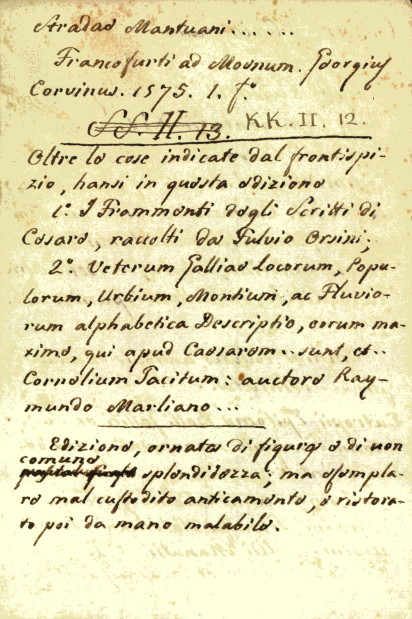 Stradae Mantuani......
Francofurti ad Moenum. Georgius
Corvinus. 1575. 1. fo.
SS. II. 13. KK. II. 12.
Oltre le cose indicate dal frontispi-
zio, hansi in questa edizione
1.o I Frammenti degli Scritti di
Cesare, raccolti da Fulvio Orsini;
2.o Veterum Galliae Locorum, Popu-
lorum, Urbium, Montium, ac Fluvio-
rum alphabetica Descriptio, eorum ma-
xime, qui apud Caesarem.. sunt, et..
Cornelium Tacitum: auctore Ray-
mundo Marliano...
Edizione, ornata di figure e di non
comune
splendidezza; ma esempla-
re mal custodito anticamente, e ristora-
to poi da mano malabile.